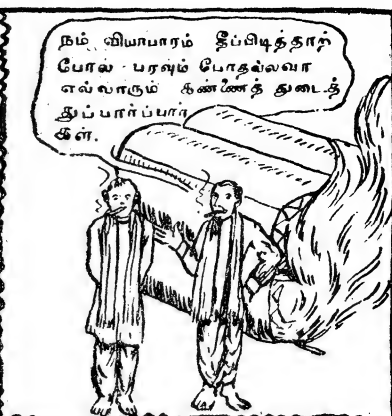 நம் வியாபாரம் தீப்பிடித்தாற்
போல் பரவும் போதல்லவா
எல்லாரும் கண்ணைத் துடைத்
துப்பார்ப்பார்
கள்.